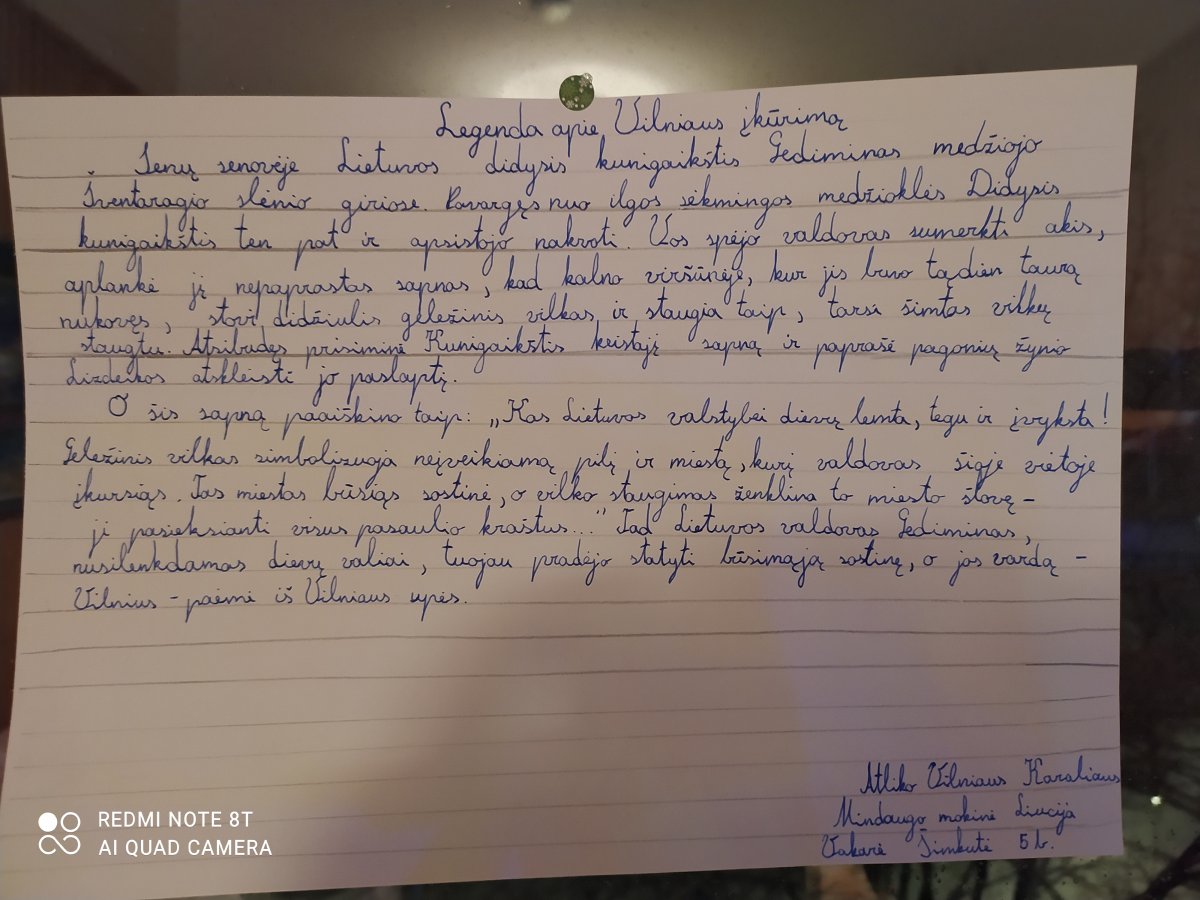 Legenda apie Vilniaus įkūrimą
Senų senovėje Lietuvos didysis kunigaikštis Gediminas medžiojo
Šventaragio slėnio giriose. Pavargęs nuo ilgos sėkmingos medžioklės Didysis
kunigaikštis ten pat ir apsistojo nakvoti. Vos spėjo valdovas sumerkti akis,
aplankė jį nepaprastas sapnas, kad kalno viršūnėje, kur jis buvo tądien taurą
nukovęs, stovi didžiulis geležinis vilkas ir staugia taip, tarsi šimtas vilkų
staugtų. Atsibudęs prisiminė Kunigaikštis keistąjį sapną ir paprašė pagonių žynio
Lizdeikos atskleisti jo paslaptį.
O šis sapną paaiškino taip: „Kas Lietuvos valstybei dievų lemta, tegu ir įvyksta!
Geležinis vilkas simbolizuoja neįveikiamą pilį ir miestą, kurį valdovas šioje vietoje
įkursiąs. Tas miestas būsiąs sostinė, o vilko staugimas ženklina to miesto šlovę -
ji pasieksianti visus pasaulio kraštus..." Tad Lietuvos valdovas Gediminas,
nusilenkdamas dievų valiai, tuojau pradėjo statyti būsimąją sostinę, o jos vardą -
Vilnius - paėmė iš Vilniaus upės.
Atliko Vilniaus Karaliaus
Mindaugo mokinė Liucija
Vakarė Šimkutė 5b.
REDMI NOTE 8T
AI QUAD CAMERA